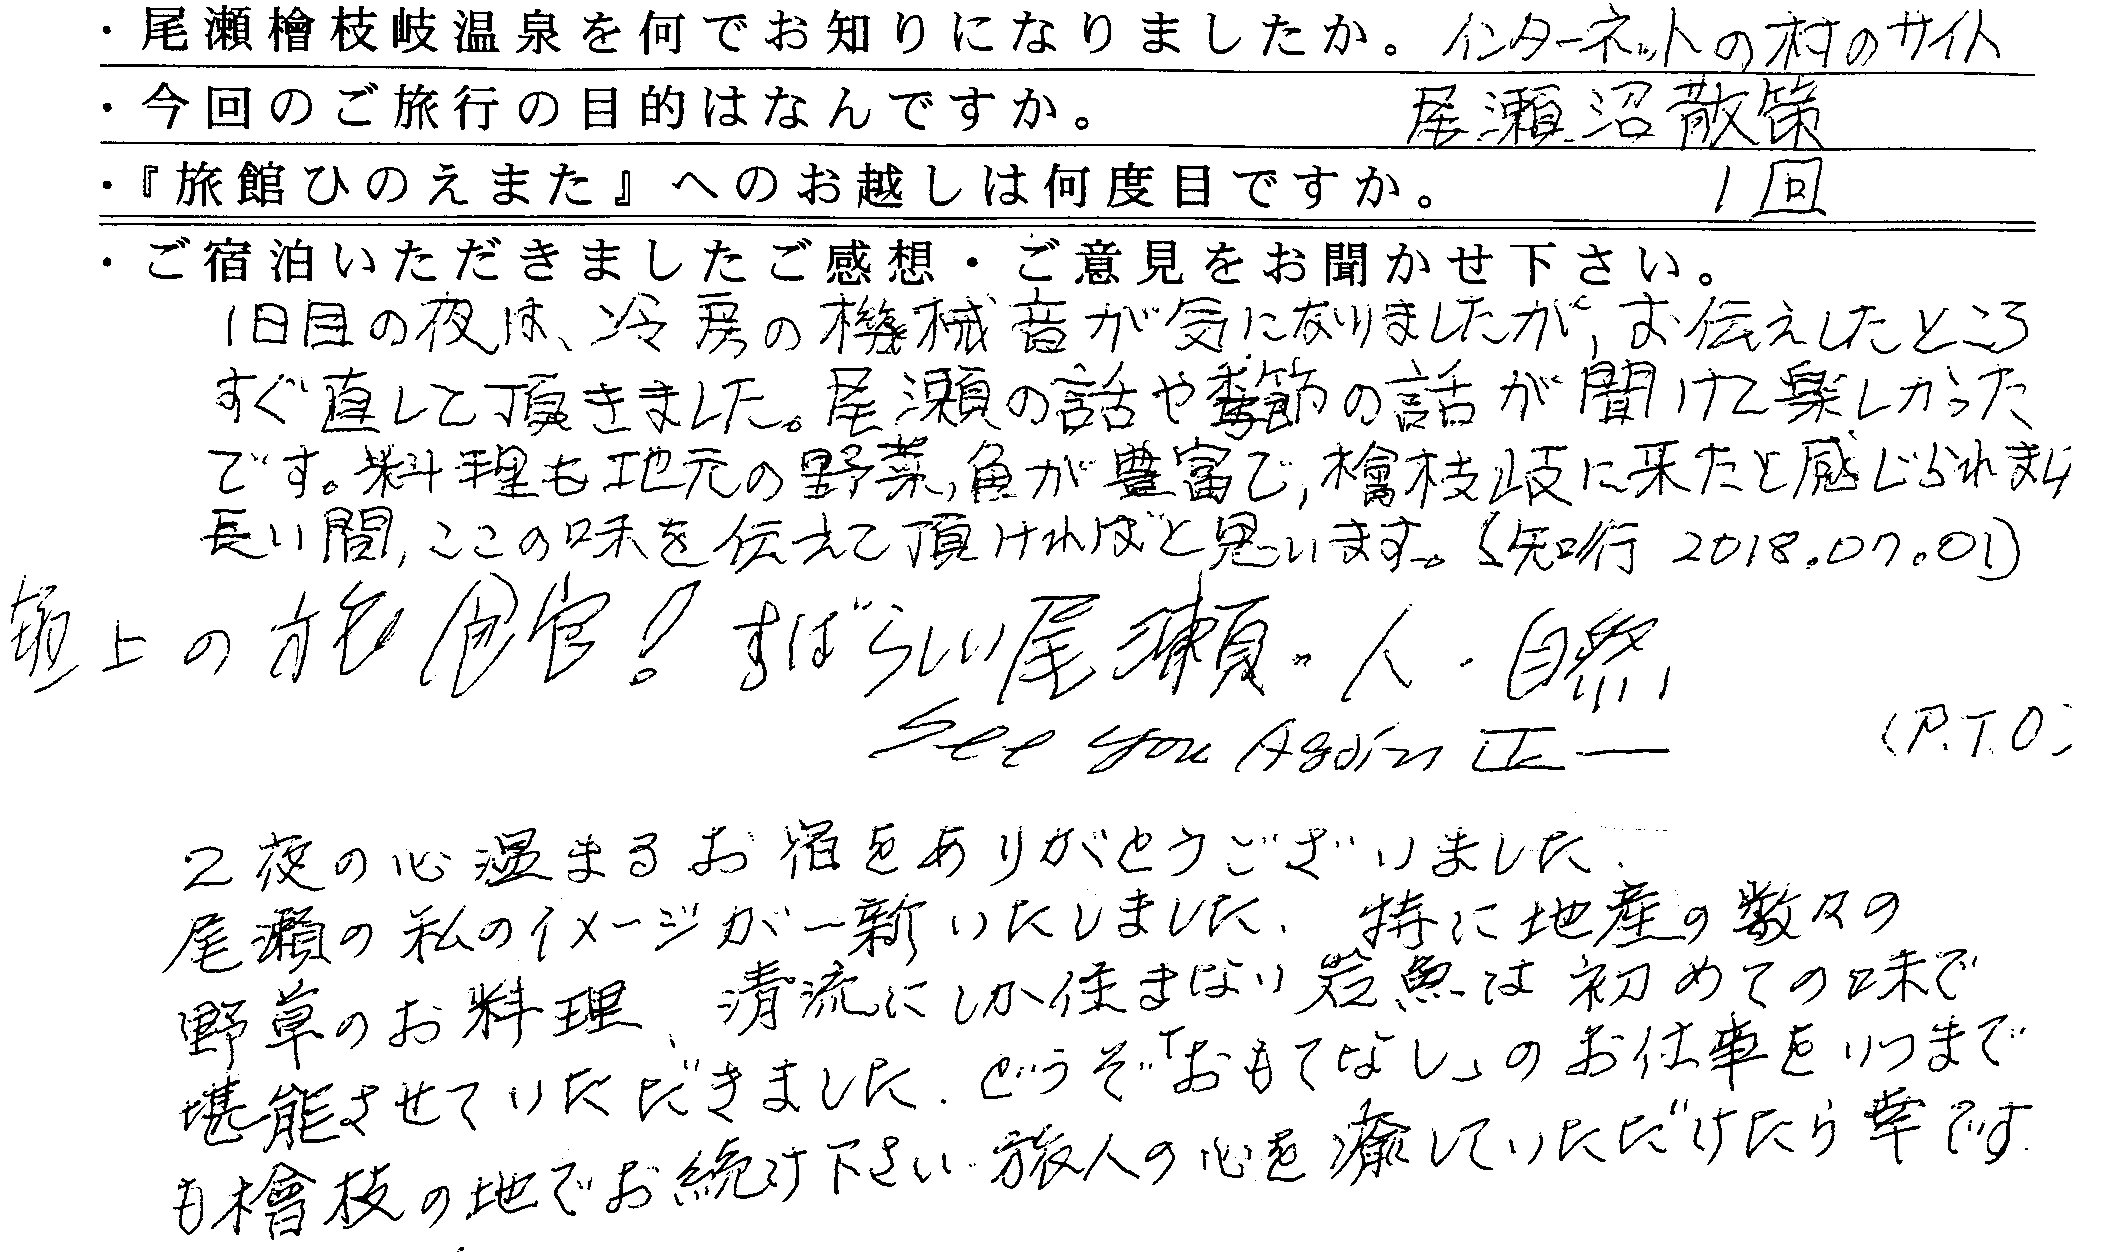 ・尾瀬檜枝岐温泉を何でお知りになりましたか。 インターネットの村のサイト
・今回のご旅行の目的はなんですか。 尾瀬沼散策
・『旅館ひのえまた』へのお越しは何度目ですか。 1回
・ご宿泊いただきましたご感想・ご意見をお聞かせ下さい。
1日目の夜は、冷房の機械音が気になりましたが、お伝えしたところ
すぐ直して頂きました。尾瀬の話や季節の話が聞けて楽しかった
です。料理も地元の野菜,魚が豊富で,檜枝岐に来たと感じられました
長い間,ここの味を伝えて頂ければと思います。(知行 2018.07.01)
極上の旅館! すばらしい尾瀬・人・自然
See You Again 正一
(P.T.O)
2夜の心温まるお宿をありがとうございました.
尾瀬の私のイメージが一新いたしました. 特に地産の数々の
野草のお料理、清流にしか住まない岩魚は初めての味で
堪能させていただきました. どうぞ「おもてなし」のお仕事をいつまで
も檜枝の地でお続け下さい. 旅人の心を癒していただけたら幸です.